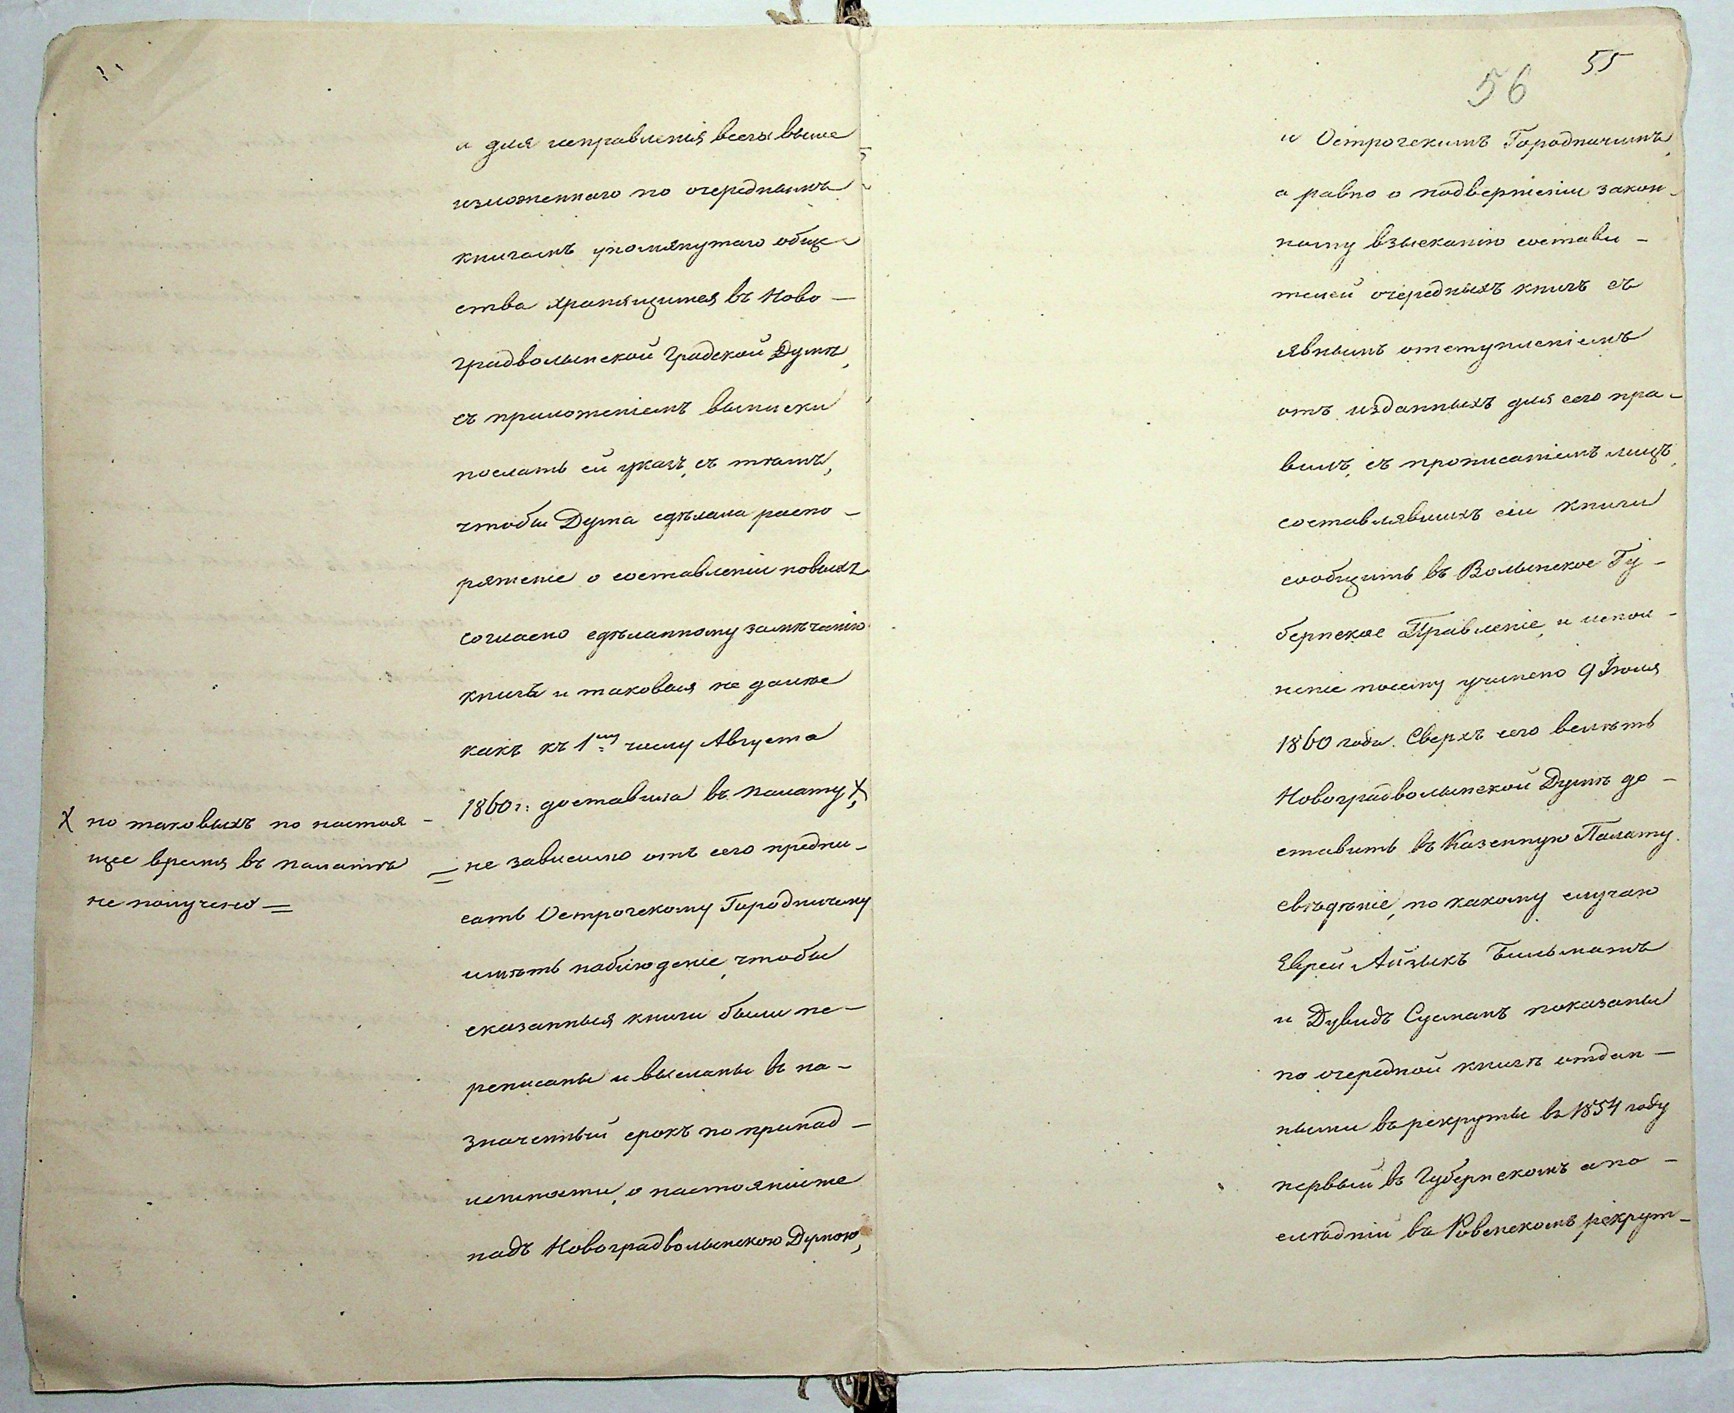 и для исправленія всего выше
изложеннаго по очереднымъ
книгамъ упомянутаго обще-
ства хранящимся въ Ново-
градволынской Градской Думѣ,
съ приложеніемъ выписки
послать ей указъ, съ тѣмъ,
чтобы Дума сдѣлала распо-
ряженіе о составленіи новыхъ
согласно сдѣланному замѣчанію
книгъ и таковыя не далѣе
какъ къ 1му числу Августа
1860 г: доставила въ палату X,
X но таковыхъ по настоя-
щее время въ палатѣ
не получено =
= не зависимо отъ сего предпи-
сать Острогскому Городничему
имѣть наблюденіе, чтобы
сказанныя книги были пе-
реписаны и высланы въ на-
значенный срокъ по принад-
лежности, о настояніи же
надъ Новоградволынскою Думою,
55
56
и Острогскимъ Городничимъ,
а равно о подверженіи закон-
ному взысканію состави-
телей очередныхъ книгъ съ
явнымъ отступленіемъ
отъ изданныхъ для сего пра-
вилъ, съ прописаніемъ лицъ,
составлявшихъ сіи книги
сообщить въ Волынское Гу-
бернское Правленіе, и испол-
неніе посему учинено 9 Іюля
1860 года. Сверхъ сего велѣть
Новоградволынской Думѣ до-
ставить въ Казенную Палату
свѣдѣніе, по какому случаю
Евреи Айзыкъ Бильманъ
и Дувидъ Сусманъ показаны
по очередной книгѣ отдан-
ными въ рекруты въ 1854 году
первый въ Губернскомъ а по-
слѣдній въ Ровенскомъ рекрут-